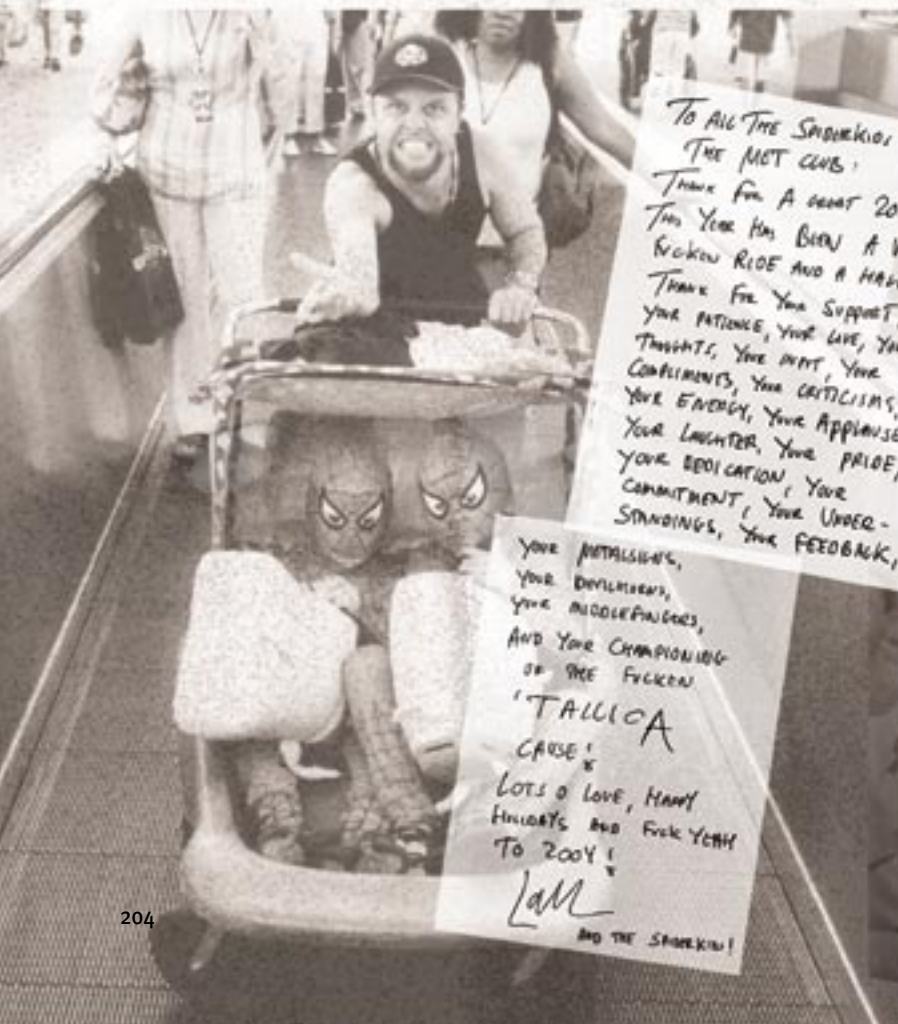 TO ALL THE SPIDERKIDS
THE MET CLUB:
THANX FOR A GREAT 20
THIS YEAR HAS BEEN A
FUCKEN RIDE AND A
THANX FOR YOUR SUPPORT,
YOUR PATIENCE, YOUR LOVE,
THOUGHTS, YOUR INPUT, YOUR
COMPLIMENTS, YOUR CRITICISMS,
YOUR ENERGY, YOUR APPLAUSE
YOUR LAUGHTER, YOUR PRIDE,
YOUR DEDICATION, YOUR
COMMITMENT, YOUR UNDER-
STANDINGS, YOUR FEEDBACK,
YOUR METALSIGNS,
YOUR DEVILHORNS,
YOUR MIDDLEFINGERS,
AND YOUR CHAMPIONING
OF THE FUCKEN
'TALLICA
CAUSE!
LOTS O LOVE, HAPPY
HOLIDAYS AND FUCK YEAH
TO 2004!
AND THE SPIDERKIDS!
204